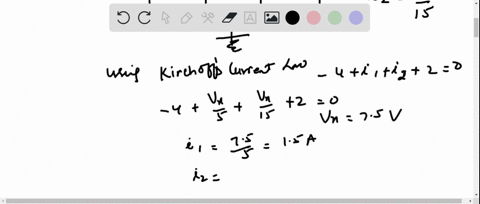 15
using Kirchoff's Current Law -4+i₁+i₂+2=0
-4 + Vx/5 + Vx/15 +2 =0
Vx = 7.5 V
i₁ = 7.5/5 = 1.5A
i₂ =